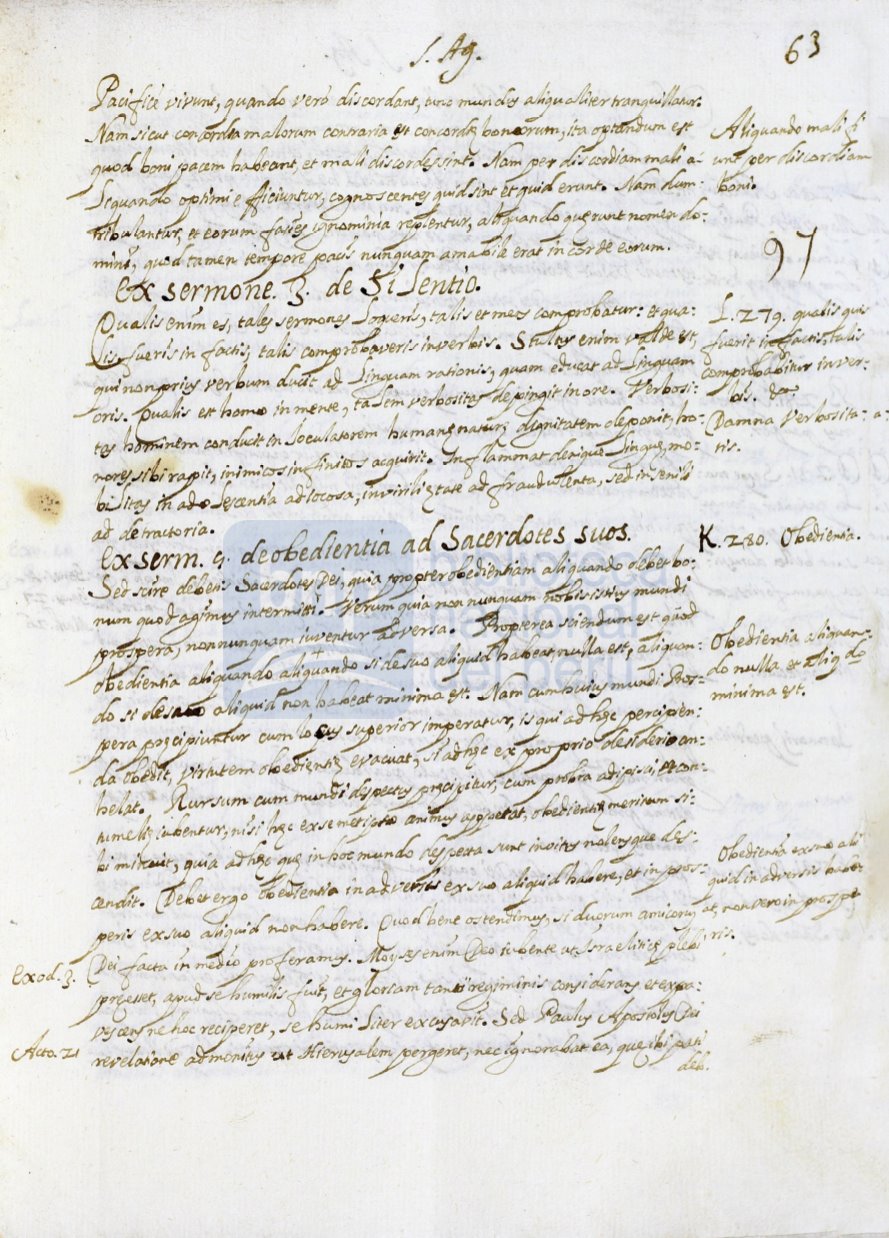 S. Ag.
63
Pacificè vivunt, quando verò discordant, tunc mundus aliqualiter tranquillatur.
Nam sicut concordia malorum contraria est concordię bonorum, ita optandum est
quod boni pacem habeant, et mali discordes sint. Nam per discordiam mali a-
liquando optimi efficiuntur, cognoscentes quid sint et quid erunt. Nam dum
tribulantur, et eorum facies ignominia replentur, aliquando quęrunt nomen do-
mini, quod tamen tempore pacis nunquam amabile erat in corde eorum.
Aliquando mali fi
unt per discordiam
boni.
97
Ex sermone. 3. de Silentio.
Qualis enim es, tales sermones loqueris, talis et mens comprobatur: et qua-
lis fueris in factis, talis comprobaveris in verbis. Stultus enim valde est,
qui non prius verbum ducit ad linguam rationis, quam educat ad linguam
oris. Qualis est homo in mente, talem verbositas depingit in ore. Verbosi-
tas hominem conducit in joculatorem humanę naturę dignitatem deponit, ho-
nores sibi rapit, inimicos infinitos acquirit. Inflammat denique linguę mo-
bilitas in adolescentia ad iocosa, in virili ętate ad fraudulenta, sed in senili
ad detractoria.
L. 279. qualis quis
fuerit in factis, talis
comprobabitur in ver-
bis. &c
Damna verbosita-
tis.
Ex serm. 5. de obedientia ad Sacerdotes suos.
K. 280. Obedientia.
Sed scire debetis Sacerdotes Dei, quia propter obedientiam aliquando debet bo-
num quod agimus intermitti. Verum quia non nunquam nobis istius mundi
prospera, nonnunquam iuventur adversa. Propterea sciendum est quod
obedientia aliquando aliquando si de suo aliquid habeat, nulla est, aliquan-
do si de suo aliquid non habeat minima est. Nam cum huius mundi pros-
pera pręcipiuntur cum locus superior imperatur, is qui ad hęc percipien-
da obedit, virtutem obedientię evacuat, si ad hęc ex proprio desiderio an-
helat. Rursum cum mundi despectus pręcipitur, cum probra adipisci, et con-
tumelię iubentur, nisi hęc ex semetipso animus appetat, obedientię meritum si-
bi minuit, quia ad hęc quę in hoc mundo despecta sunt invitus nolensque des-
cendit. Debet ergo obedientia in adversis ex suo aliquid habere, et in pros-
peris ex suo aliquid non habere. Quod bene ostendimus, si duorum amicorum
Dei facta in medio proferamus. Moyses enim Deo iubente ut Israeliticę plebi
pręesset, apud se humilis fuit, et gloriam tanti regiminis considerans et expa-
vescens ne hoc reciperet, se humiliter excusavit. Sed Paulus Apostolus Dei
revelatione admonitus ut Hierusalem pergeret, nec ignorabat ea, quę ibi pati
deb.
Obedientia aliquan-
do nulla et aliqdo
minima est.
Obedientia ex suo ali
quid in adversis habet
at, non vero in prospe
ris.
Exod. 3.
Acto. 21
biblioteca
nacional
del perú